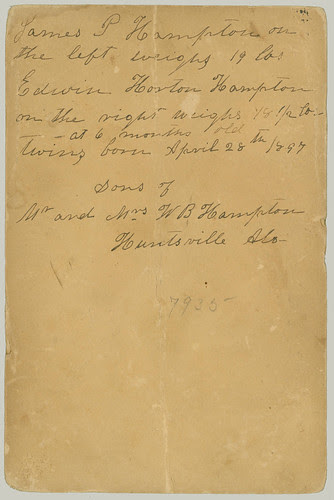 James P Hampton on
the left weighs 19 lbs
Edwin Horton Hampton
on the right weighs 18 1/2 lb
- at 6 months old -
twins born April 28th 1897
Sons of
Mr and Mrs W B Hampton
Huntsville Ala
7935